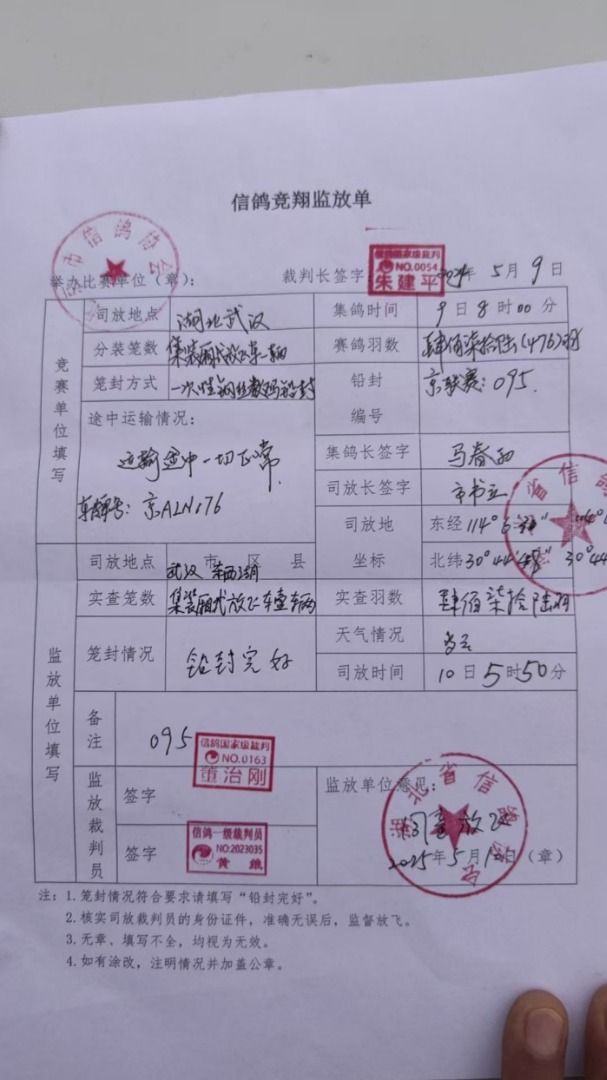 信鸽竞翔监放单
市信鸽协会
举办比赛单位(章):
裁判长签字
信鸽国家级裁判
NO.0054
朱建平
年5月9日
竞赛单位填写
司放地点 湖北武汉 集鸽时间 9日8时00分
分装笼数 赛鸽羽数 肆佰柒拾陆(476)羽
笼封方式 一次性钢丝数码铅封 铅封编号 京联赛:095.
途中运输情况:
运输途中一切正常.
车牌号:京ALN176
集鸽长签字
司放长签字
司放地坐标 东经114°6′
北纬30°44′
监放单位填写
司放地点 武汉市 区县
实查笼数 实查羽数 肆佰柒拾陆羽
笼封情况 铅封完好 天气情况 多云
司放时间 10日5时50分
备注 095
信鸽国家级裁判
NO.0163
董治刚
监放裁判员
签字
签字
信鸽一级裁判员
NO:2023035
黄
监放单位意见:
同意放飞
湖北省信鸽协会
2025年5月10日(章)
省信鸽
注:1.笼封情况符合要求请填写“铅封完好”。
2.核实司放裁判员的身份证件,准确无误后,监督放飞。
3.无章、填写不全,均视为无效。
4.如有涂改,注明情况并加盖公章。